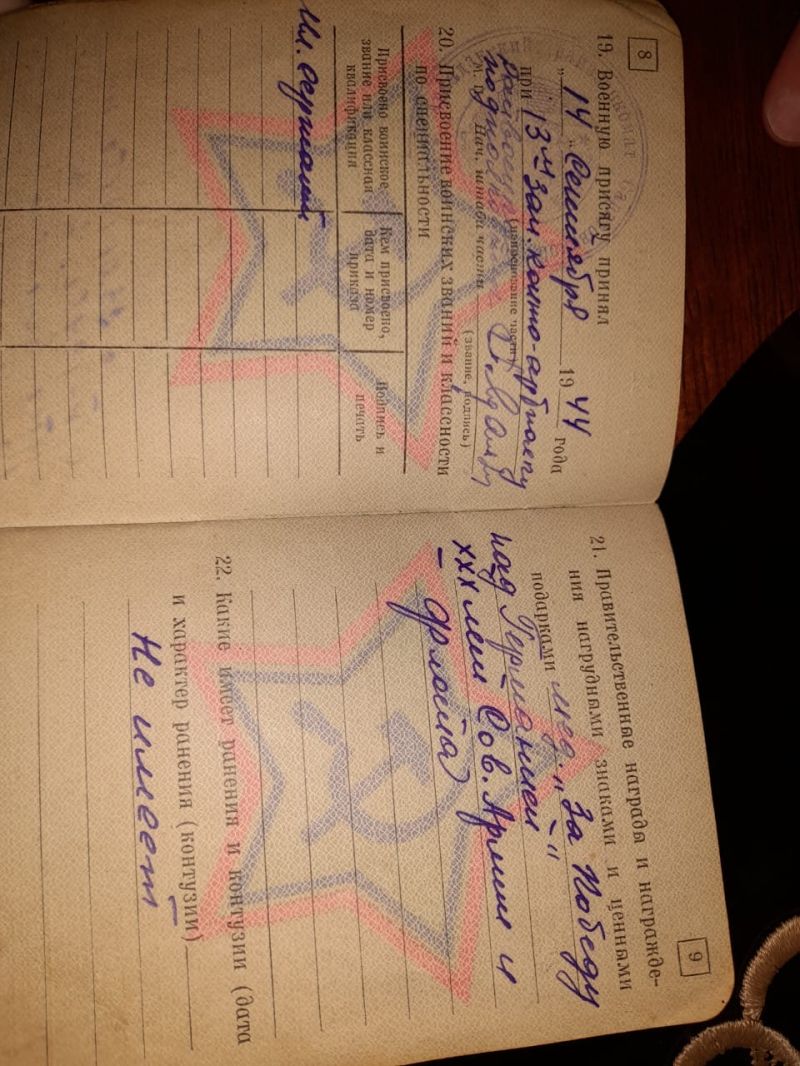 8
19. Военную присягу принял
„14„ Сентября 1944 года
при 13-м зап. кав-
(наименование части)
М. П. Нач. штаба части
(звание, подпись)
20. Присвоение воинских званий и классности
по специальности
Присвоено воинское звание или классная квалификация
Кем присвоено, дата и номер приказа
Подпись и печать
Мл. сержант
9
21. Правительственные награды и награжде-
ния нагрудными знаками и ценными
подарками мед. „За Победу
над Германией"
XXX лет Сов. Армии и
флота
22. Какие имеет ранения и контузии (дата
и характер ранения (контузии)
Не имеет